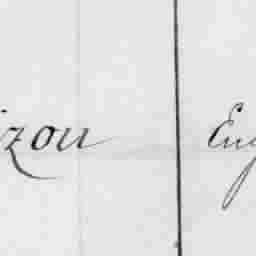 izou Eug